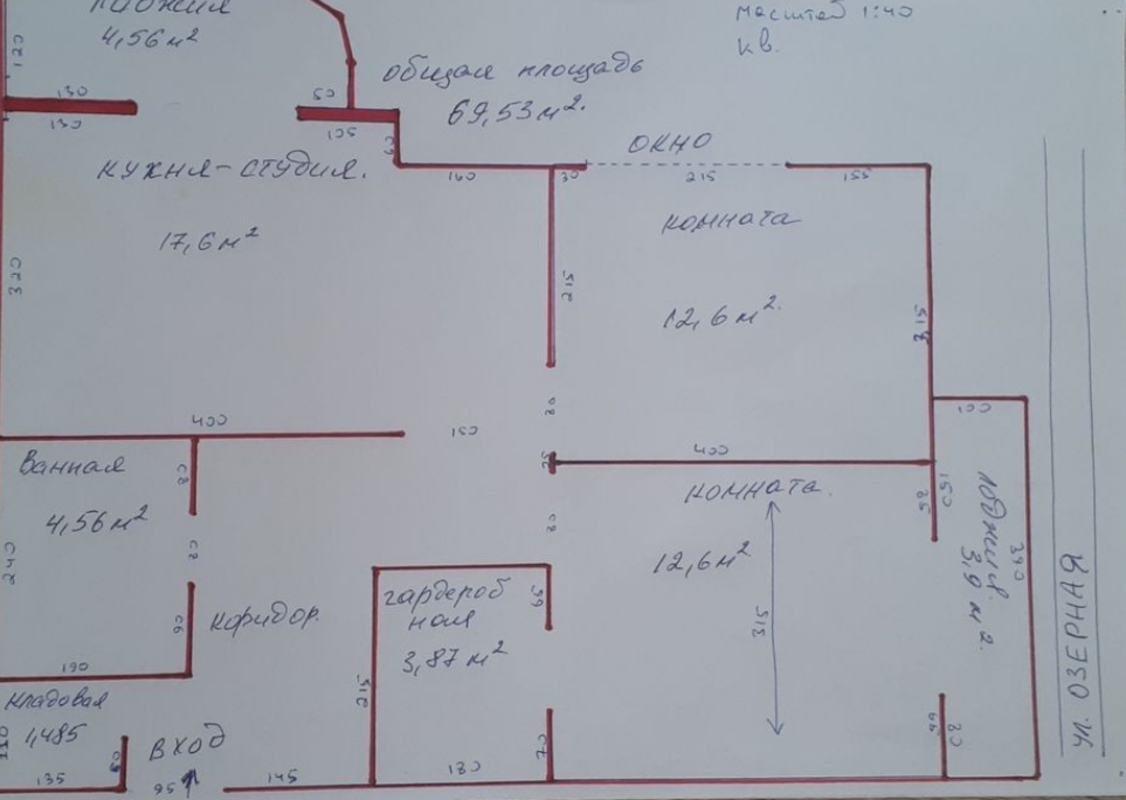 лоджия
Масштаб 1:40
4,56 м²
кв.
120
130
130
50
105
общая площадь
69,53 м².
60
ОКНО
160
30
215
155
кухня-студия.
17,6 м²
320
комната
12,6 м².
215
315
400
150
80
25
400
100
Ванная
4,56 м²
80
комната.
12,6 м²
315
85
150
лоджия
3,9 м 2.
390
ул. ОЗЕРНАЯ
240
90
190
коридор.
гардероб
ная
3,87 м²
65
210
80
кладовая
1,485
110
135
60
ВХОД
95
145
180
70
80